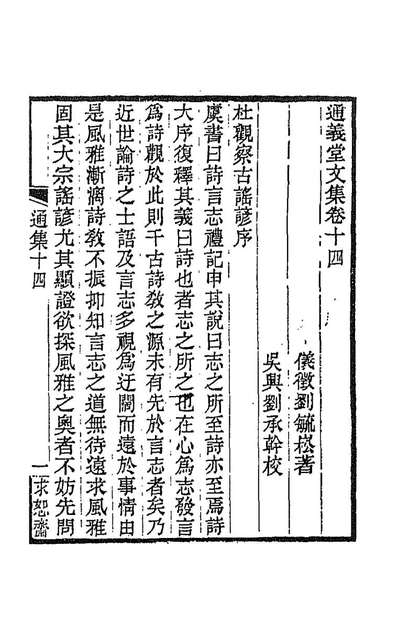 通義堂文集卷十四
儀徵劉毓崧著
吳興劉承幹校
杜觀察古謠諺序
虞書曰詩言志禮記申其說曰志之所至詩亦至焉詩
大序復釋其義曰詩也者志之所之也在心爲志發言
爲詩觀於此則千古詩敎之源未有先於言志者矣乃
近世論詩之士語及言志多視爲迂闊而遠於事情由
是風雅漸漓詩敎不振抑知言志之道無待遠求風雅
固其大宗謠諺尤其顯證欲探風雅之奧者不妨先問
通集十四
一
求恕齋